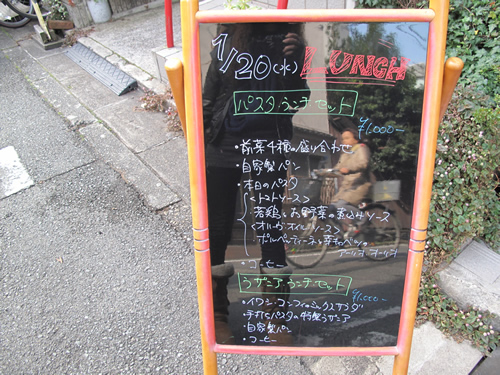 1/20(水) LUNCH
パスタランチセット
¥1,000-
・前菜4種の盛り合わせ
・自家製パン
・本日のパスタ
<トマトソース>
若鶏とお野菜の煮込みソース
<オリーヴオイルソース>
ポルペッティーネと芽キャベツの
アーリオオーリオ
・コーヒー
ラザニアランチセット
¥1,000-
・イワシのコンフィのミックスサラダ
・手打ちパスタの特製ラザニア
・自家製パン
・コーヒー